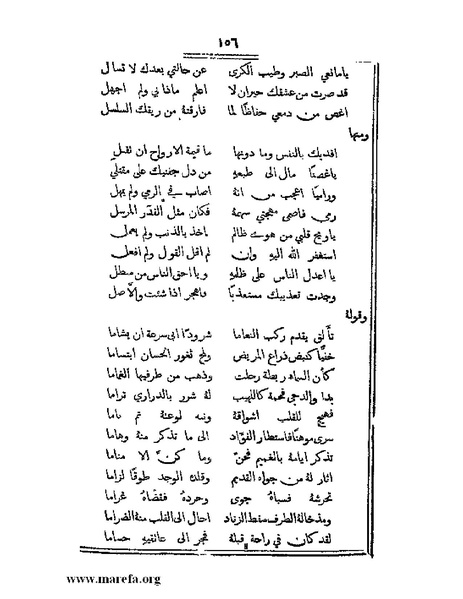 ١٥٦
يا مانعي الصبر وطيب الكرى عن حالتي بعدك لا تسال
قد صرت من عشقك حيران لا اعلم ماذا بي ولم اجهل
اغص من دمعي حفاظا لما فارقته من ريقك السلسل
ومنها
افديك بالنفس وما دونها ما قيمة الارواح ان تقبل
يا غصنا مال الى طبعه من دل جفنيك على مقتلي
وراميا اعجب من انه اصاب في الرمي ولم يهل
رمى فاصمى مهجتي سهمه فكان مثل القدر المرسل
يا ويح قلبي من هوى ظالم ياخذ بالذنب ولم يعمل
استغفر الله اليه وان لم اقل القول ولم افعل
يا اعدل الناس على ظلمه ويا احق الناس من مبطل
وجدت تعذيبك مستعذبا فاهجر اذا شئت والا صل
وقوله
تألق يقدم ركب النعاما شرودا ابى سرعة ان يشاما
خفيا كنبض ذراع المريض ولمح ثغور الحسان ابتساما
كأن السماء ربطة رحلت وذهب من طرفيها الغماما
بدا والدجى فحمة كاللهيب له شرر بالدراري تراما
فهيج للقلب اشواقه ونبه لوعته ثم ناما
سرى موهنا فاستطار الفؤاد الى ما تذكر منه وهاما
تذكر ايامه بالغميم فحن وما كن الا مناما
اثار له من جواه القديم وقلد الوجد طوقا لزاما
تحرشه فسباه جوى وجرده فقضاه غراما
ومذ خاله الطرف سقط الزناد احال الى القلب منه الضراما
لقد كان في راحة قبله فجر الى عاتقيه حساما
www.marefa.org